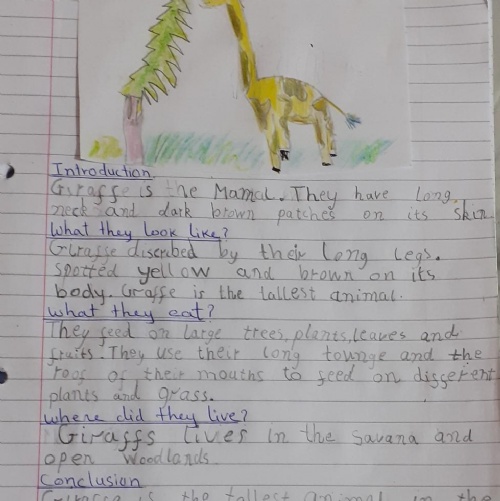 Introduction
Giraffe is the Mamal. They have long
neck and dark brown patches on its skin
What they look like?
Giraffe discribed by their Long Legs.
spotted yellow and brown on its
body. Graffe is the tallest animal.
What they eat?
They feed on large trees, plants, leaves and
fruits. They use their long townge and the
roof of their mouths to feed on different
plants and grass.
where did they live?
Giraffs lives in the Savana and
open woodlands.
Conclusion
Giraffe is the tallest animal in the